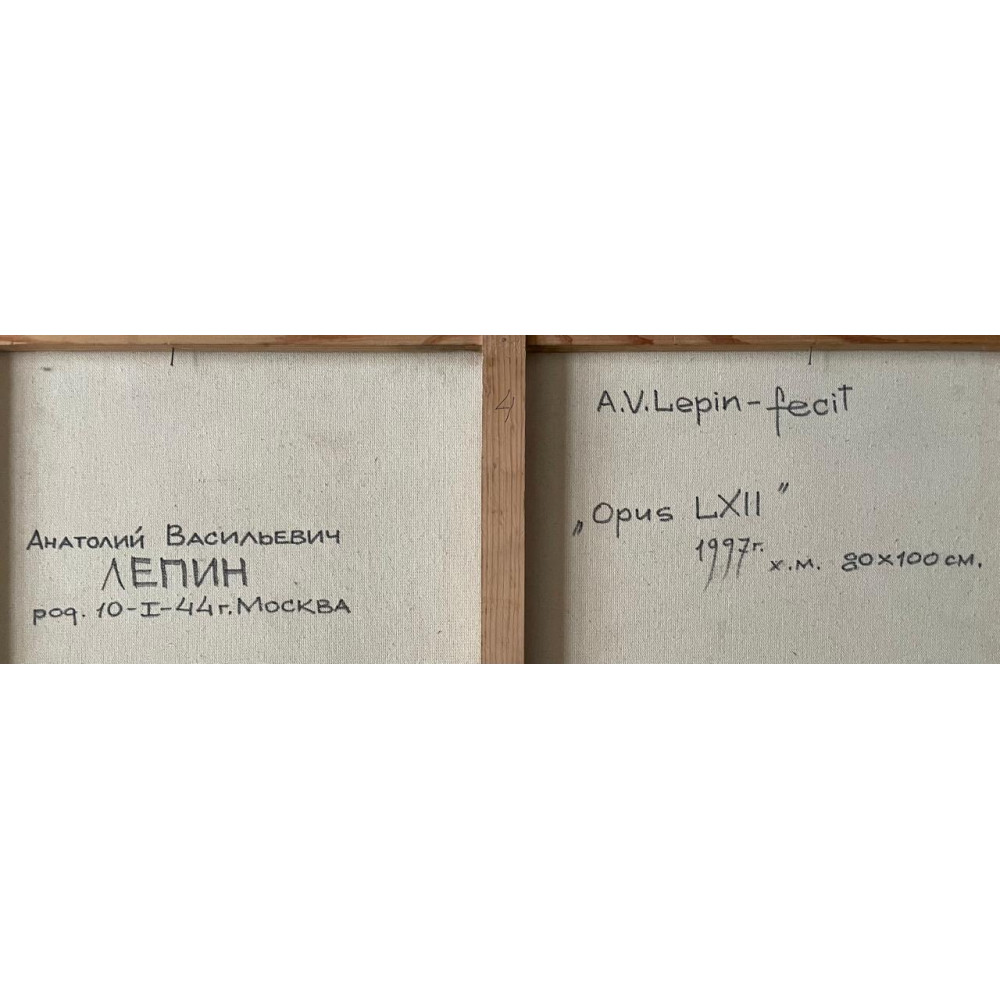 Анатолий Васильевич
ЛЕПИН
род. 10-I-44г. Москва
4
A.V. Lepin - fecit
„Opus LXII"
1997г. х.м. 80х100 см.